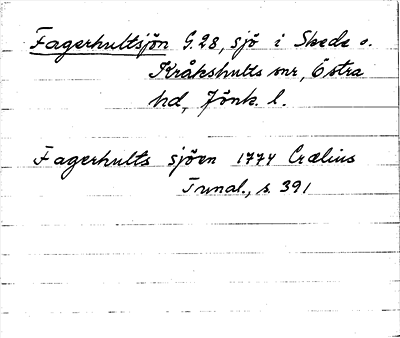 Fagerhultsjön G.28, sjö i Skede o.
Kråkshults snr, Östra
hd, Jönk. l.
Fagerhults sjöen 1774 Crælius
Tunal., s. 391